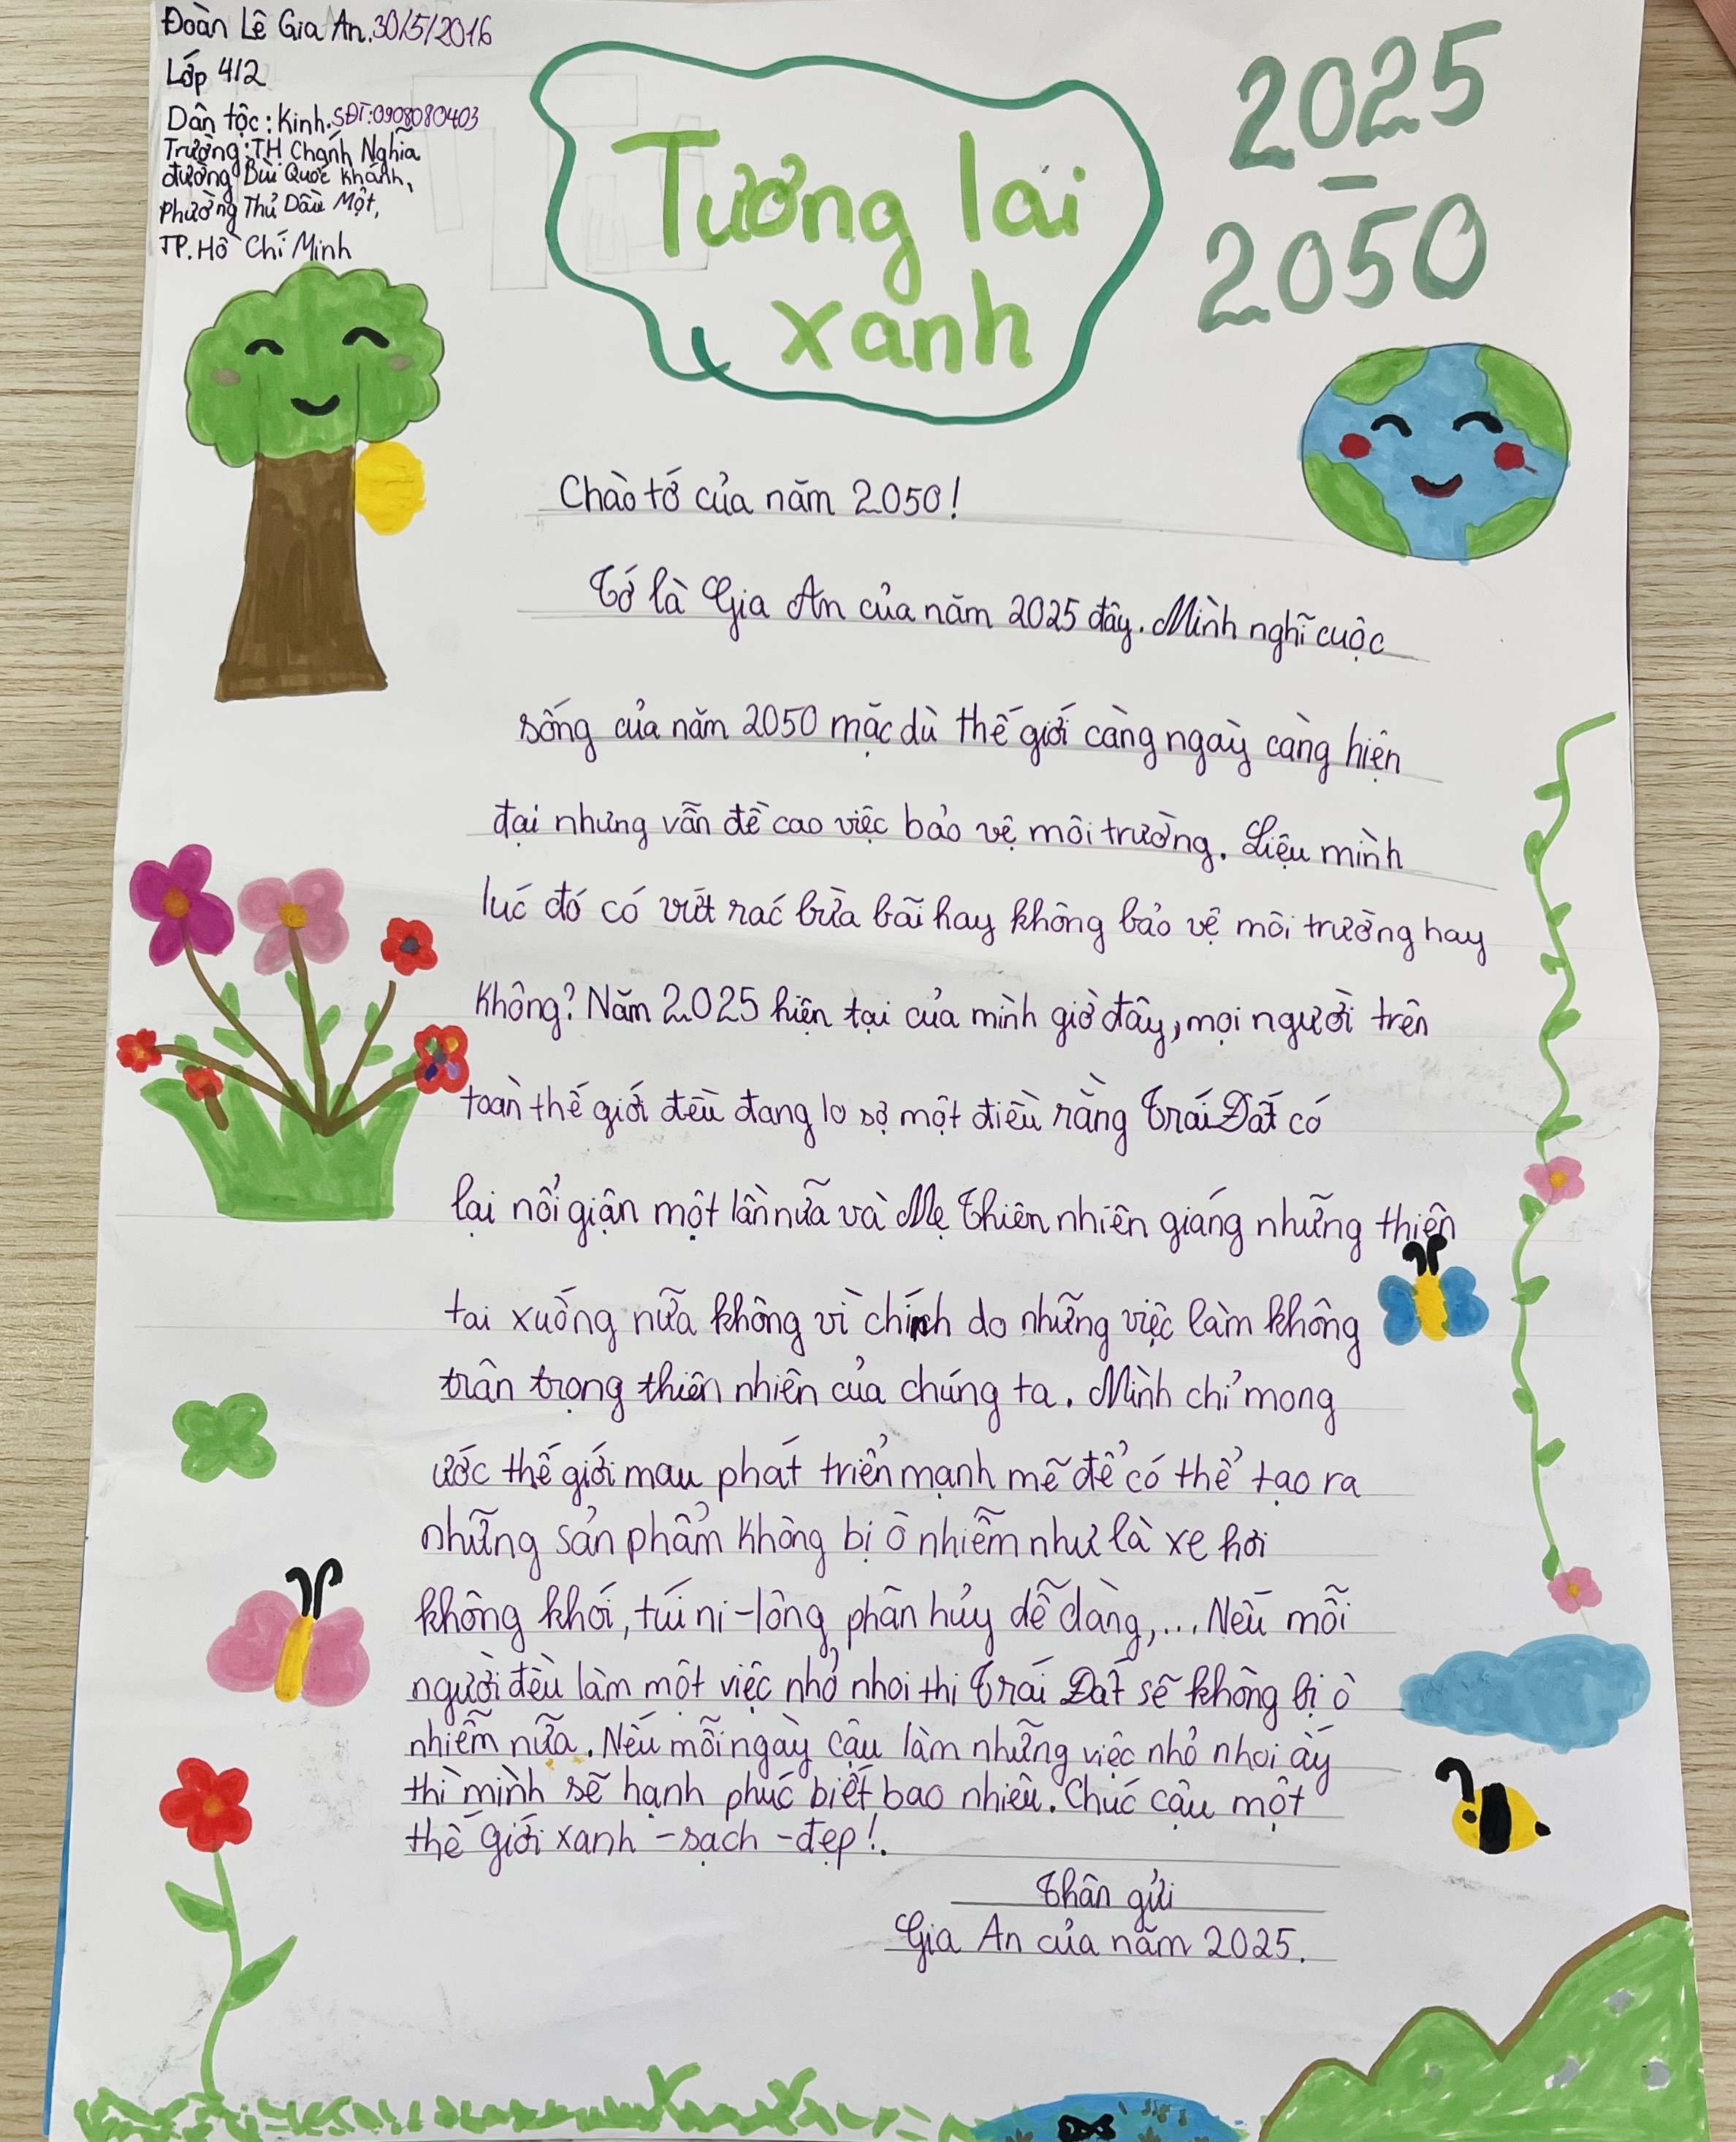 Đoàn Lê Gia An. 30/5/2016
Lớp 4/2
Dân tộc: Kinh. SĐT: 0908080403
Trường: TH Chánh Nghĩa
đường Bùi Quốc Khánh,
Phường Thủ Dầu Một,
TP. Hồ Chí Minh
Tương lai
xanh
2025
–
2050
Chào tớ của năm 2050!
Tớ là Gia An của năm 2025 đây. Mình nghĩ cuộc
sống của năm 2050 mặc dù thế giới càng ngày càng hiện
đại nhưng vẫn đề cao việc bảo vệ môi trường. Liệu mình
lúc đó có vứt rác bừa bãi hay không bảo vệ môi trường hay
không? Năm 2025 hiện tại của mình giờ đây, mọi người trên
toàn thế giới đều đang lo sợ một điều rằng Trái Đất có
lại nổi giận một lần nữa và Mẹ Thiên nhiên giáng những thiên
tai xuống nữa không vì chính do những việc làm không
trân trọng thiên nhiên của chúng ta. Mình chỉ mong
ước thế giới mau phát triển mạnh mẽ để có thể tạo ra
những sản phẩm không bị ô nhiễm như là xe hơi
không khói, túi ni-lông phân hủy dễ dàng,... Nếu mỗi
người đều làm một việc nhỏ nhoi thì Trái Đất sẽ không bị ô
nhiễm nữa. Nếu mỗi ngày cậu làm những việc nhỏ nhoi ấy
thì mình sẽ hạnh phúc biết bao nhiêu. Chúc cậu một
thế giới xanh – sạch – đẹp!.
Thân gửi
Gia An của năm 2025.